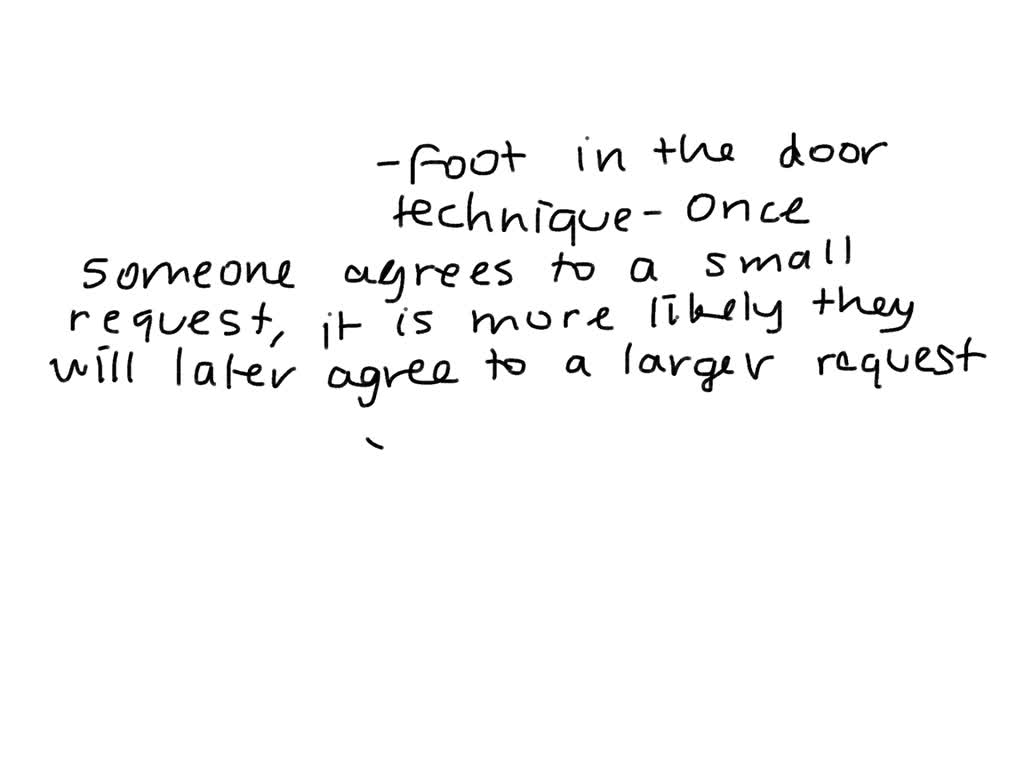 -foot in the door
technique - Once
someone agrees to a small
request, it is more likely they
will later agree to a larger request